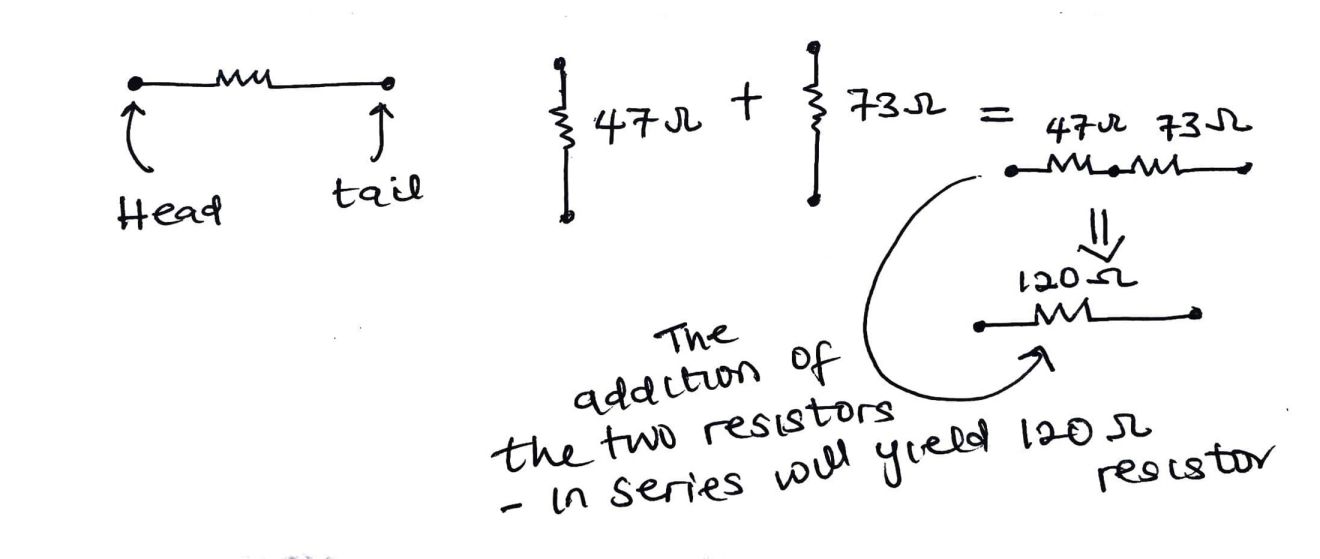 Head
tail
47Ω + 73Ω =
47Ω 73Ω
120Ω
The
addition of
the two resistors
- in series will yield 120 Ω
resistor